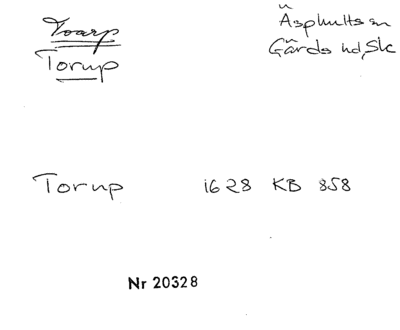 Toarp
Torup
Äsphults sn
Gärds hd, Sk
Torup 1628 KB 858
Nr 20328